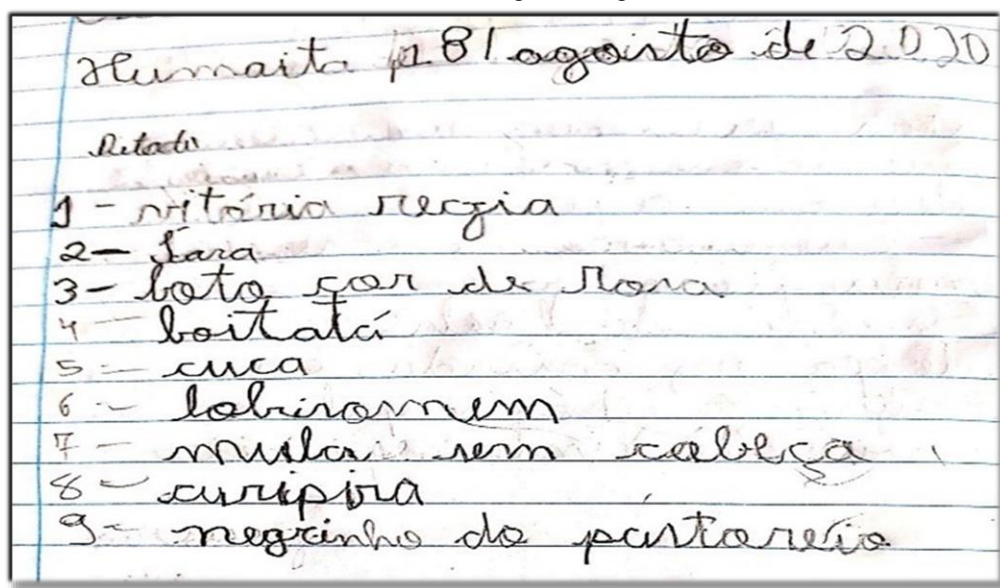 Humaita 181 agosto de 2020
Ditado
1 - vitória regia
2 - Iara
3 - boto cor de rosa
4 - boitatá
5 - cuca
6 - lobisomem
7 - mula sem cabeça
8 - curupira
9 - negrinho do pastoreio